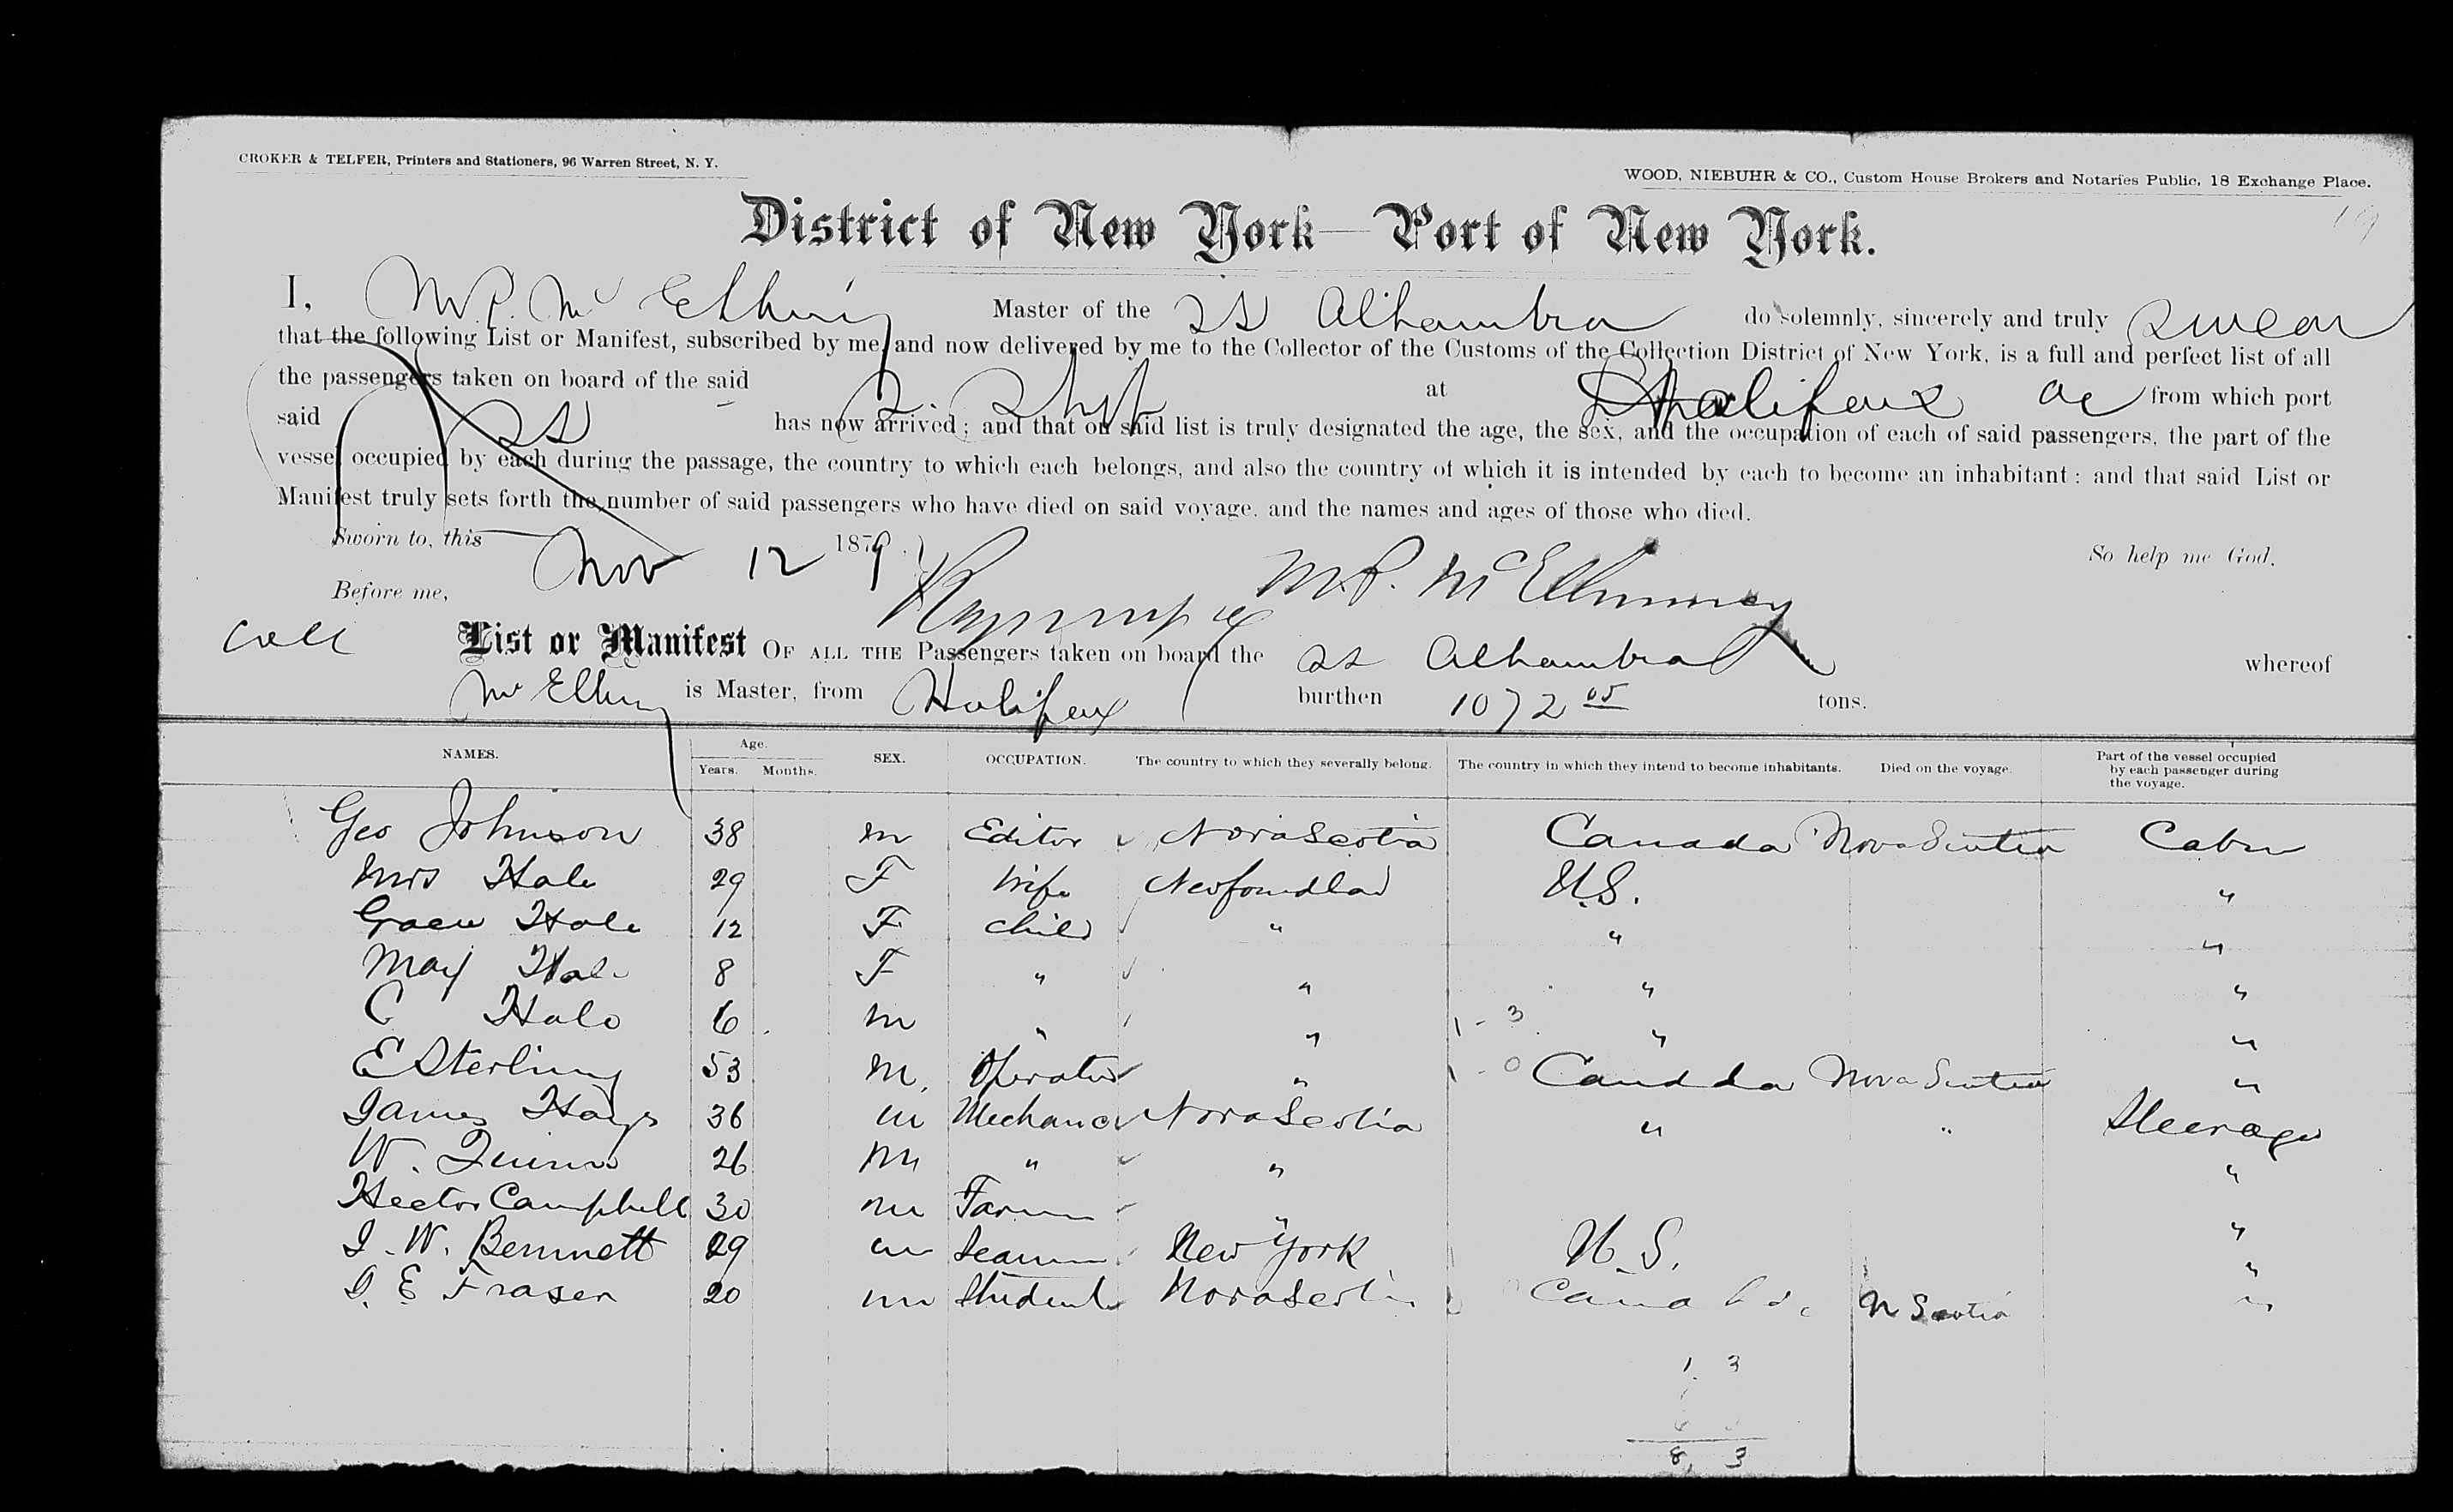 CROKER & TELFER, Printers and Stationers, 96 Warren Street, N. Y.
WOOD, NIEBUHR & CO., Custom House Brokers and Notaries Public, 18 Exchange Place.
District of New York—Port of New York.
I, Master of the SS Alhambra do solemnly, sincerely and truly swear
that the following List or Manifest, subscribed by me, and now delivered by me to the Collector of the Customs of the Collection District of New York, is a full and perfect list of all
the passengers taken on board of the said at Halifax from which port
said SS has now arrived; and that on said list is truly designated the age, the sex, and the occupation of each of said passengers, the part of the
vessel occupied by each during the passage, the country to which each belongs, and also the country of which it is intended by each to become an inhabitant: and that said List or
Manifest truly sets forth the number of said passengers who have died on said voyage, and the names and ages of those who died.
Sworn to, this Nov 12 1879. So help me God.
Before me, M.P. McElhinney
List or Manifest OF ALL THE Passengers taken on board the SS Alhambra whereof
is Master, from Halifax burthen 1072 05 tons.
NAMES. Age. Years. Months. SEX. OCCUPATION. The country to which they severally belong. The country in which they intend to become inhabitants. Died on the voyage. Part of the vessel occupied by each passenger during the voyage.
Geo Johnson 38 m Editor Nova Scotia Canada Nova Scotia Cabin
Mrs Hale 29 F Wife Newfoundlad U.S. "
Hale 12 F child " " "
May Hale 8 F " " " "
C Hale 6 m " " 1 - 3 " "
E Sterling 53 m. Operator " 1 - 0 Canada Nova Scotia "
James Hays 36 m Mechanic Nova Scotia " " Steerage
W. Quinn 26 m " " "
Hector Campbell 30 m Farmer " "
J. W. Bennett 29 m Seaman New York U.S. "
D. E Fraser 20 m Student Nova Scotia Canada N Scotia "
1 3
8, 3